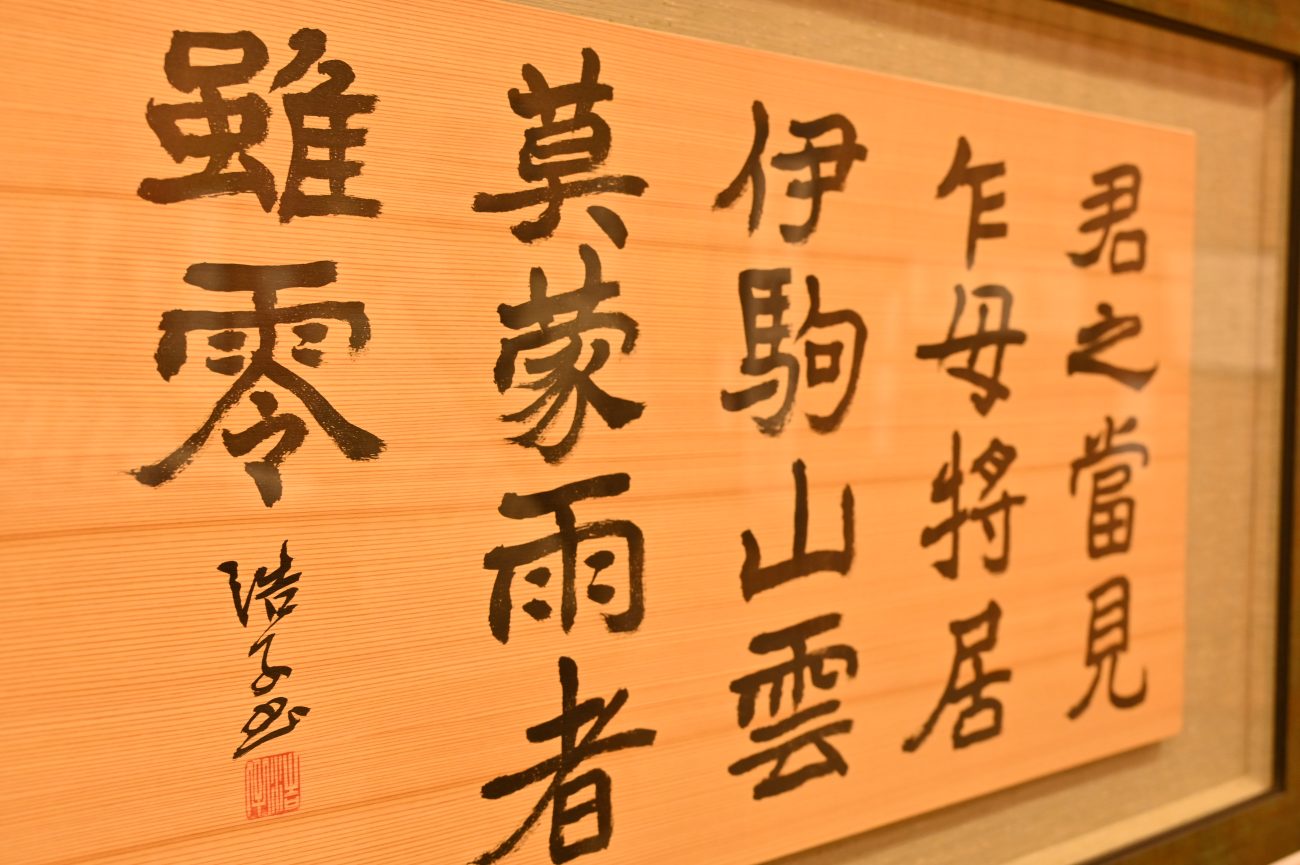 君之當見
乍母将居
伊駒山雲
莫蒙雨者
雖零
浩子書